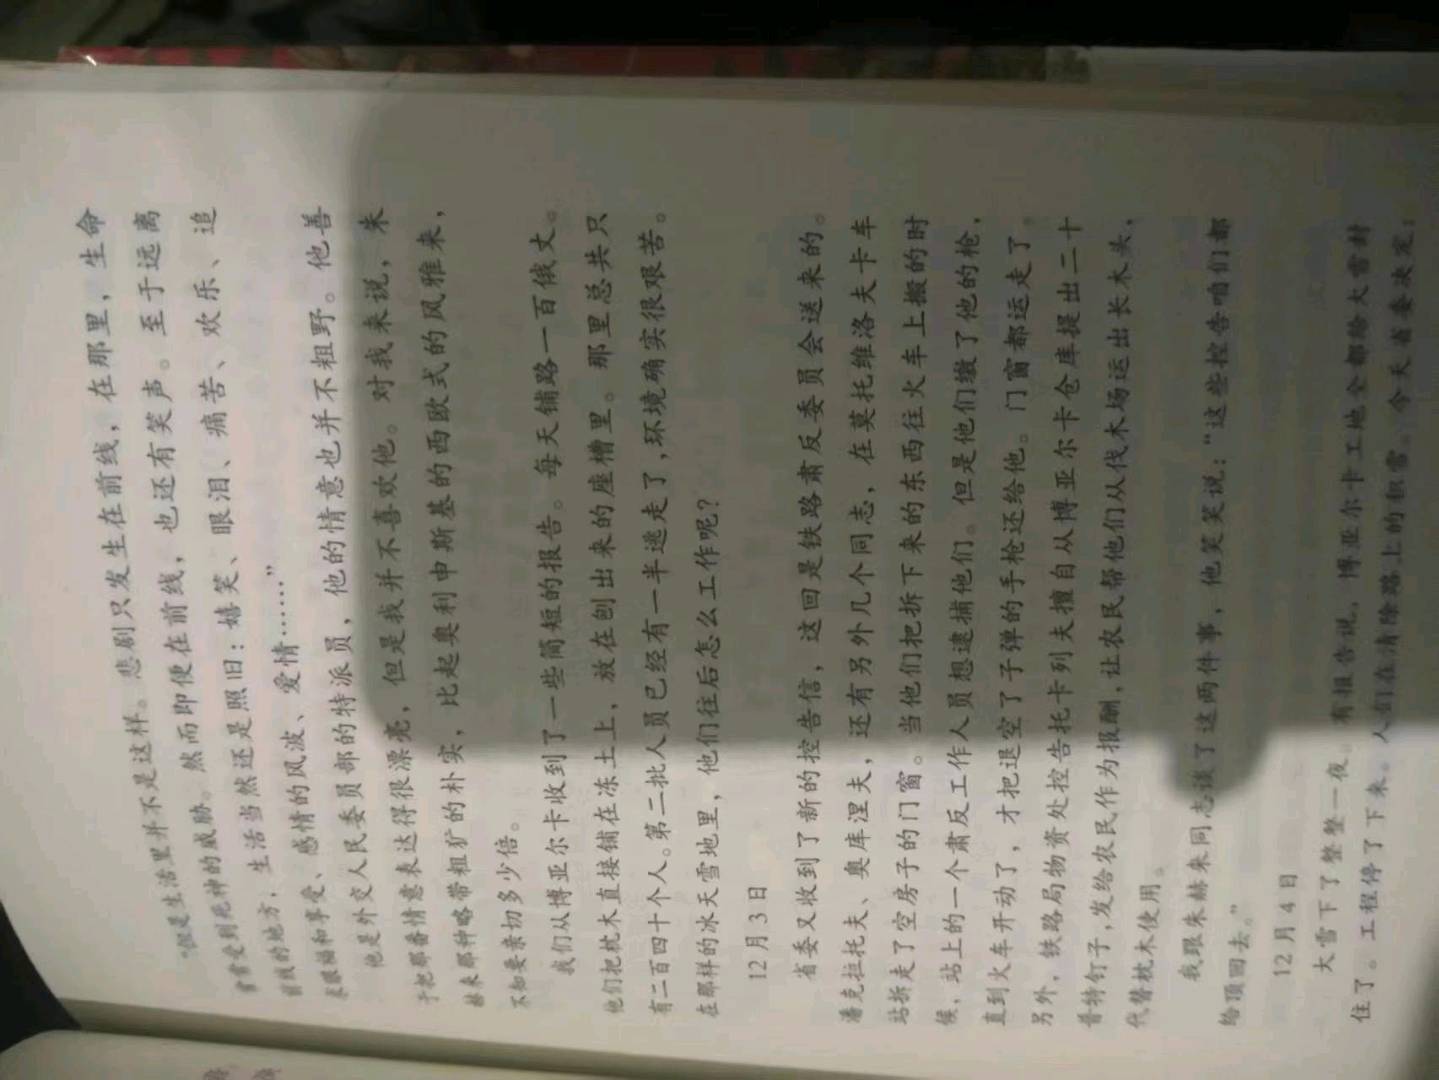 “但是生活里并不是这样。悲剧只发生在前线，在那里，生命
常常受到死神的威胁。然而即便在前线，也还有笑声。至于远离
前线的地方，生活当然还是照旧：嬉笑、眼泪、痛苦、欢乐、追
求眼福和享受、感情的风波、爱情……”
他是外交人民委员部的特派员，他的情意也并不粗野。他善
于把那番情意表达得很漂亮，但是我并不喜欢他。对我来说，朱
赫来那种略带粗犷的朴实，比起奥利申斯基的西欧式的风雅来，
不知要亲切多少倍。
我们从博亚尔卡收到了一些简短的报告。每天铺路一百俄丈。
他们把枕木直接铺在冻土上，放在刨出来的座槽里。那里总共只
有二百四十个人。第二批人员已经有一半逃走了，环境确实很艰苦。
在那样的冰天雪地里，他们往后怎么工作呢？
12月3日
省委又收到了新的控告信，这回是铁路肃反委员会送来的。
潘克拉托夫、奥库涅夫，还有另外几个同志，在莫托维洛夫卡车
站拆走了空房子的门窗。当他们把拆下来的东西往火车上搬的时
候，站上的一个肃反工作人员想逮捕他们。但是他们缴了他的枪，
直到火车开动了，才把退空了子弹的手枪还给他。门窗都运走了。
另外，铁路局物资处控告托卡列夫擅自从博亚尔卡仓库提出二十
普特钉子，发给农民作为报酬，让农民帮他们从伐木场运出长木头，
代替枕木使用。
我跟朱赫来同志谈了这两件事，他笑笑说：“这些控告咱们都
给顶回去。”
12月4日
大雪下了整整一夜。有报告说，博亚尔卡工地全都给大雪封
住了。工程停了下来。人们在清除路上的积雪。今天省委决定：